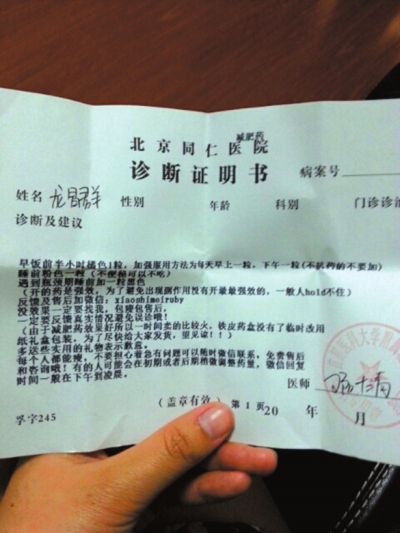 减肥药
北京同仁医院
诊断证明书
病案号
姓名 性别 年龄 科别 门诊诊
诊断及建议
早饭前半小时橘色1粒，加强服用方法为每天早上一粒，下午一粒(不抗药的不要加)
睡前粉色一粒(不便秘可以不吃)
遇到瓶颈期睡前加一粒黑色
(开的药是强效，为了避免出现副作用没有开最最强效的，一般人hold不住)
反馈及售后加微信：xiaoshimeiruby
没效果一定要找我，包瘦包售后，
一定要反馈真实情况避免误诊哦！
(由于减肥药效果好所以一时间卖的比较火，铁皮药盒没有了临时改用
纸礼盒包装，为了尽快给大家发货，里见谅!！)
多送些实用的礼物表示歉意，
每个人都能瘦，不要担心着急有问题可以随时微信联系，免费售后
和咨询哦！有的人可能会在初期或者后期稍微调整药量，微信回复
时间一般在下午到凌晨，
医师
(盖章有效) 第1页 20 年 月
字245